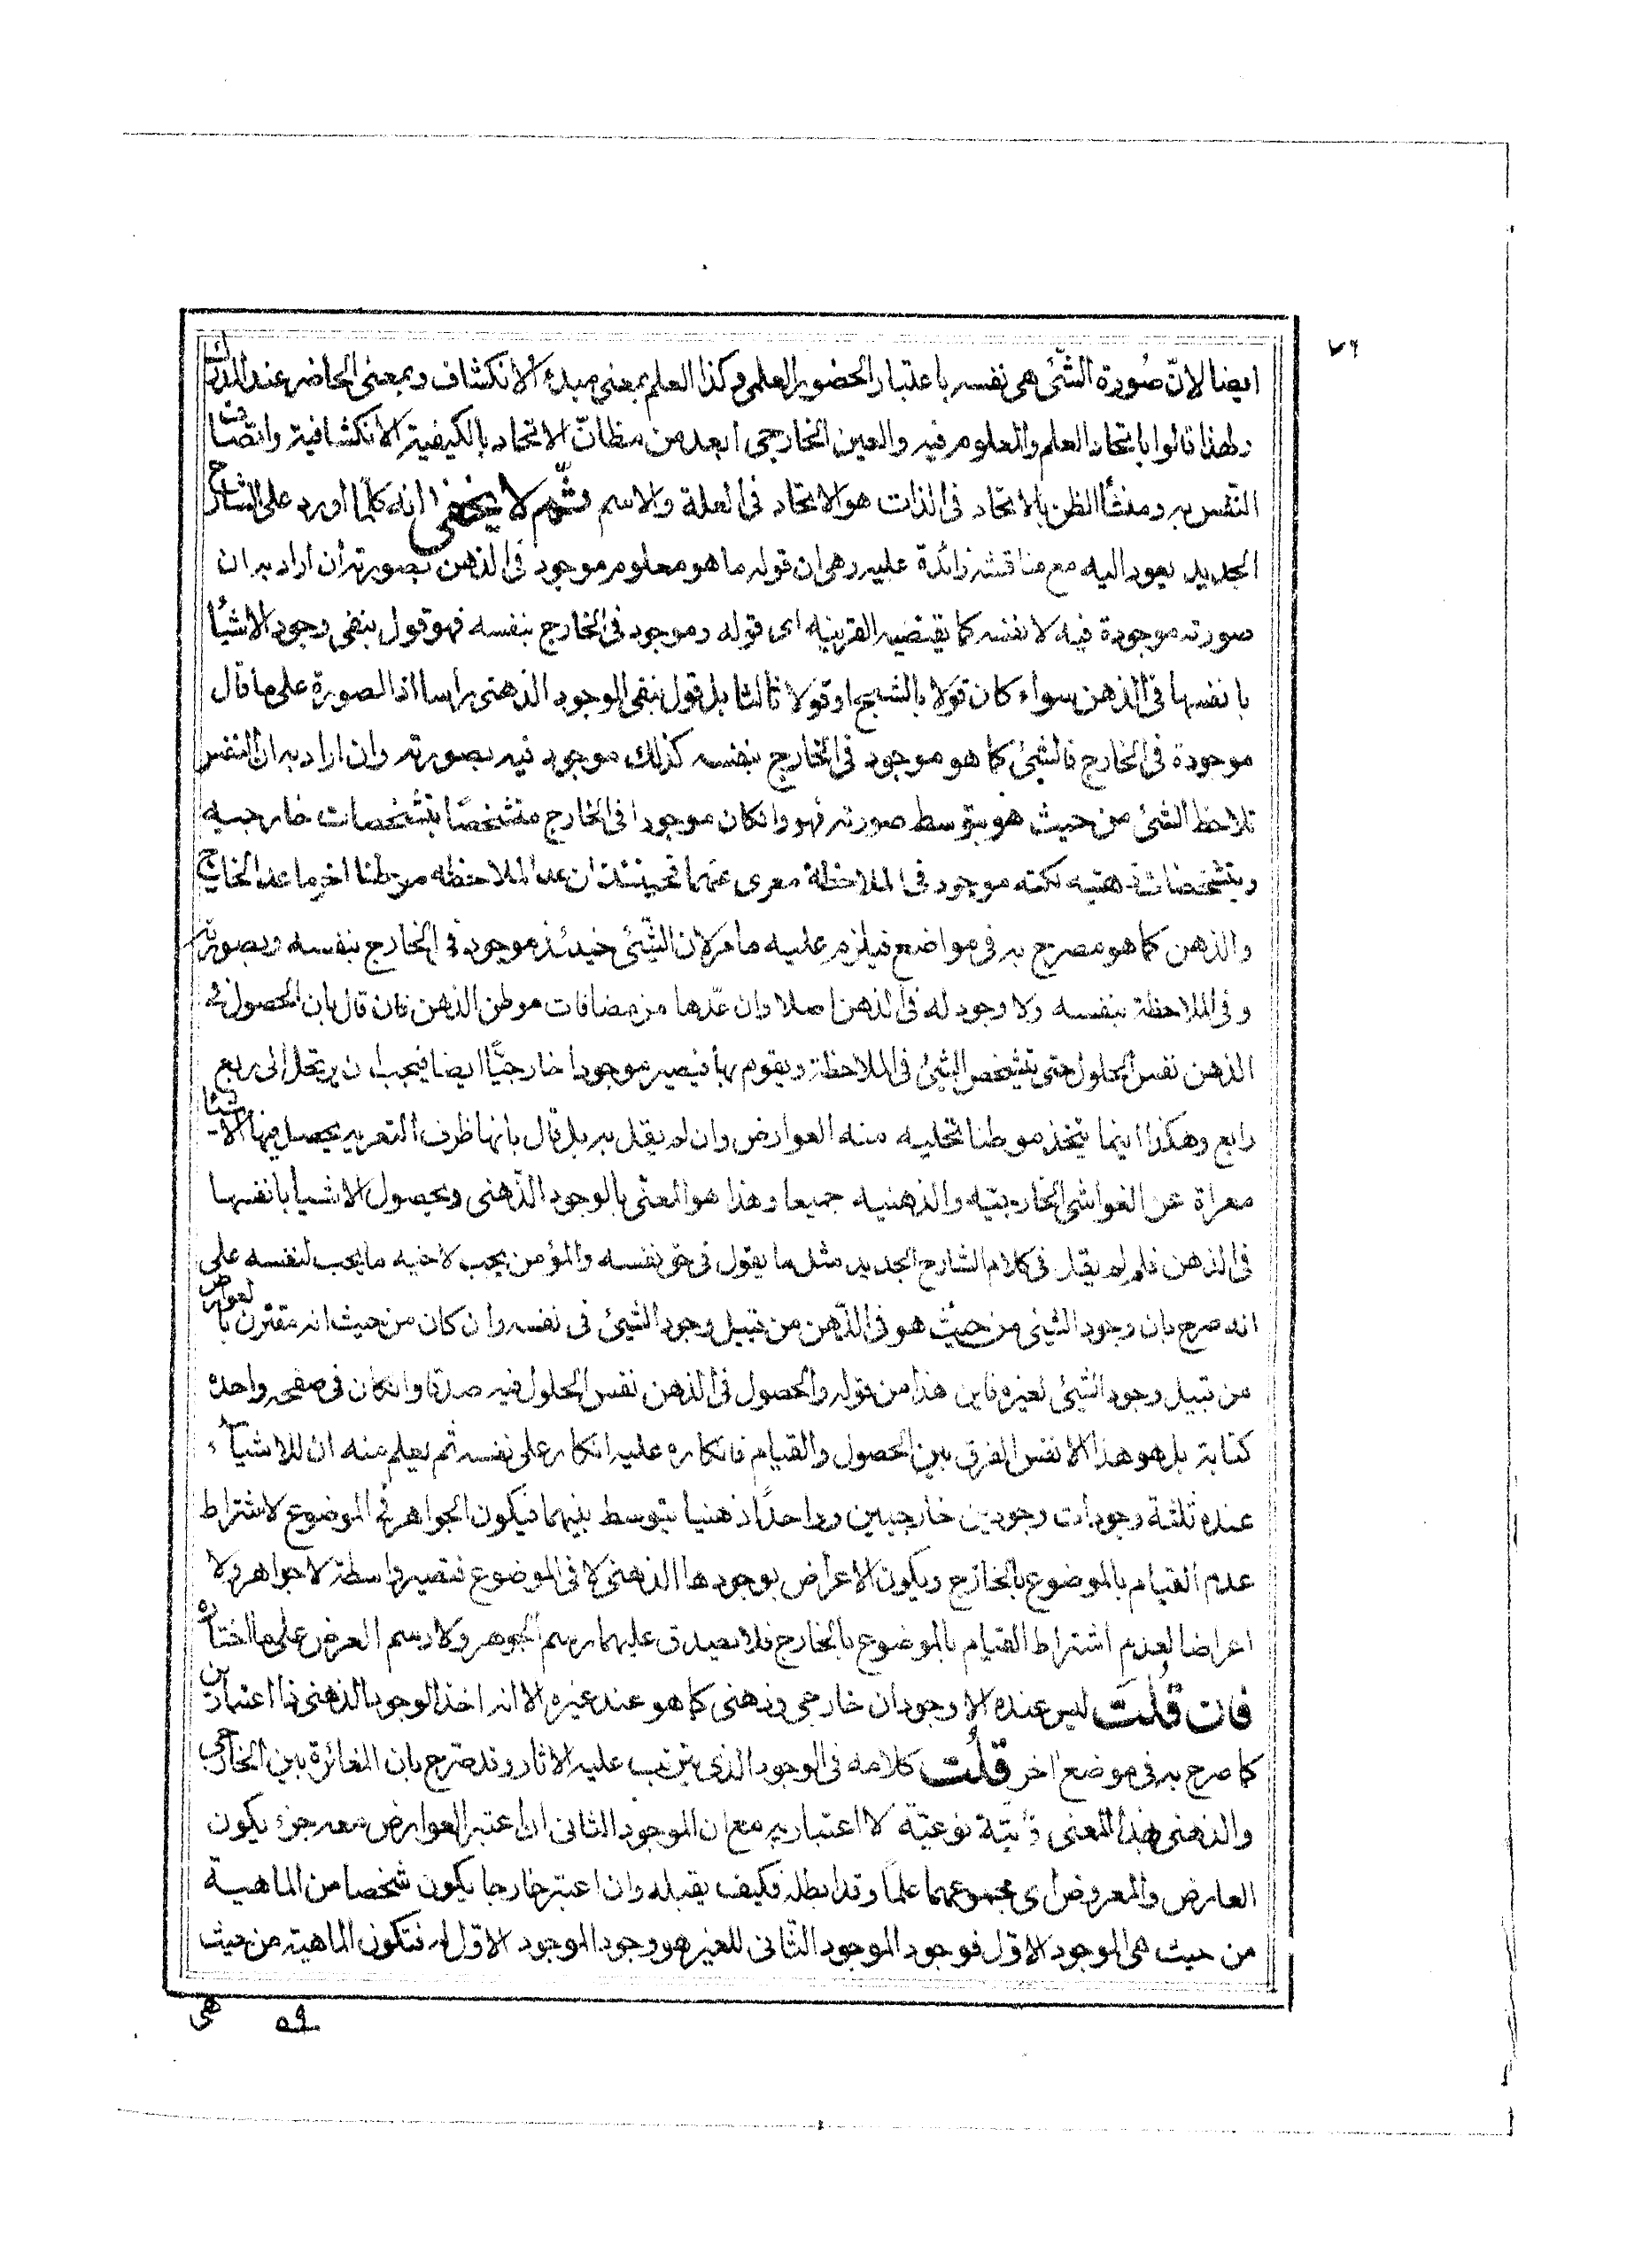 ٧٦
ايضا لانّ صُورة الشّئ هى نفسه باعتبار الحضور العلمى وكذا العلم بمعنى مبدء الانكشاف وبمعنى الحاضر عند المدرك
ولهذا قالوا باتحاد العلم والمعلوم فيه والعين الخارجى ابعد من مظانّ الاتحاد بالكيفية الانكشافية واتصاف
النّفس به ومنشأ الظن بالاتحاد فى الذات هو الاتحاد فى العلة والاسم ثمّ لا يخفى انه كلما اورد على الشارح
الجديد يعود اليه مع مناقشة زائدة عليه وهى ان قوله ما هو معلوم موجود فى الذهن بصورته أن اراد به ان
صورته موجودة فيه لا نفسه كما يقتضيه القرينه اى قوله وموجود فى الخارج بنفسه فهو قول بنفى وجود الاشيأ
بانفسها فى الذهن سواء كان قولا بالشبح او قولا ثالثا بل قول بنفى الوجود الذهنى راسا اذ الصورة على ما قال
موجودة فى الخارج فالشئ كما هو موجود فى الخارج بنفسه كذلك موجود فيه بصورته وان اراد به ان النفس
تلاحظ الشئ من حيث هو بتوسط صورته فهو وانكان موجودا فى الخارج متشخصًا بتشخصات خارجيه
وبتشخصات ذهنيه لكنه موجود فى الملاحظة معرى عنهما فحينئذ ان عد الملاحظه موطنا اخر ما عدا الخارج
والذهن كما هو مصرح به فى مواضع فيلزم عليه ما مر لان الشّئ حينئذ موجود فى الخارج بنفسه وبصورته
وفى الملاحظة بنفسه ولا وجود له فى الذهن اصلا وان عدّها من مضافات موطن الذهن فان قال بان الحصول فى
الذهن نفس الحلول حتى يتشخص الشئ فى الملاحظة ويقوم بها فيصير موجودا خارجيًّا ايضا فيجب ان يرتحل الى ربع
رابع وهكذا اينما يتخذ موطنا تخليه منه العوارض وان لم يقل به بل قال بانها ظرف التعريه يحصل فيها الاشيا
معراة عن الغواشى الخارجيّه والذهنيه جميعا وهذا هو المعنى بالوجود الذّهنى وبحصول الاشيا بانفسها
فى الذهن فلم لم يقل فى كلام الشارح الجديد مثل ما يقول فى حق نفسه والمؤمن يحب لاخيه ما يحب لنفسه على
انه صرح بان وجود الشئ من حيث هو فى الذّهن من قبيل وجود الشئ فى نفسه وان كان من حيث انه مقترن بالعوارض
من قبيل وجود الشئ لغيره فاين هذا من قوله والحصول فى الذهن نفس الحلول فيه صدقا وانكان فى صفحه واحده
كتابة بل هو هذا الانفس الفرق بين الحصول والقيام فانكاره عليه انكار على نفسه ثم يعلم منه ان للاشياء
عنده ثلثة وجودات وجودين خارجيين وواحدًا ذهنيا بتوسط بينهما فيكون الجواهر فى الموضوع لاشتراط
عدم القيام بالموضوع بالخارج ويكون الاعراض بوجودها الذهنى لا فى الموضوع فتصير واسطة لا جواهر ولا
اعراضا لعدم اشتراط القيام بالموضوع بالخارج فلا يصدق عليهما رسم الجوهر ولا رسم العرض على ما اختاره
فان قُلتَ ليس عنده الا وجودان خارجى وذهنى كما هو عند غيره الا انه اخذ الوجود الذهنى ذا اعتبارين
كما صرح به فى موضع اخر قلُت كلامه فى الوجود الذى يترتب عليه الاثار وقد صرح بان المغائرة بين الخارجى
والذهنى بهذا المعنى ذاتيّة نوعيّة لا اعتباريه مع ان الموجود الثانى ان اعتبر العوارض معه جزء يكون
العارض والمعروض اى مجموعهما علمًا وقد ابطله فكيف يقبله وان اعتبر خارجا يكون شخصا من الماهية
من حيث هى الموجود الاوّل فوجود الموجود الثّانى للغير هو وجود الموجود الاوّل له فتكون الماهية من حيث
هى
٥٩